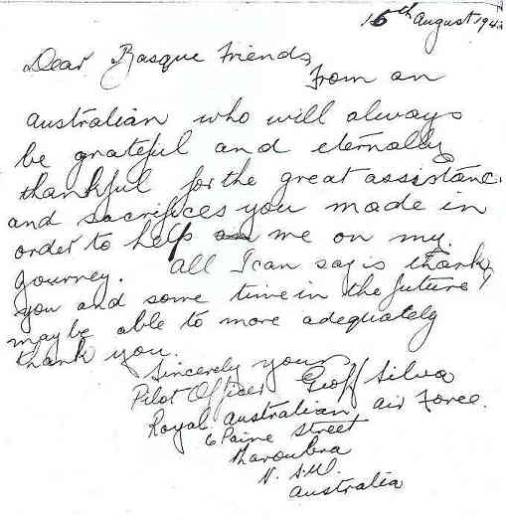 16th August 194
Dear Basque Friends,
From an
Australian who will always
be grateful and eternally
thankful for the great assistance
and sacrifices you made in
order to help me on my
journey. All I can say is thank
you and some time in the future I
may be able to more adequately
thank you.
Sincerely yours
Pilot Officer Geoff Silva
Royal Australian Air Force.
6 Paine Street
Maroubra
N.S.W.
Australia